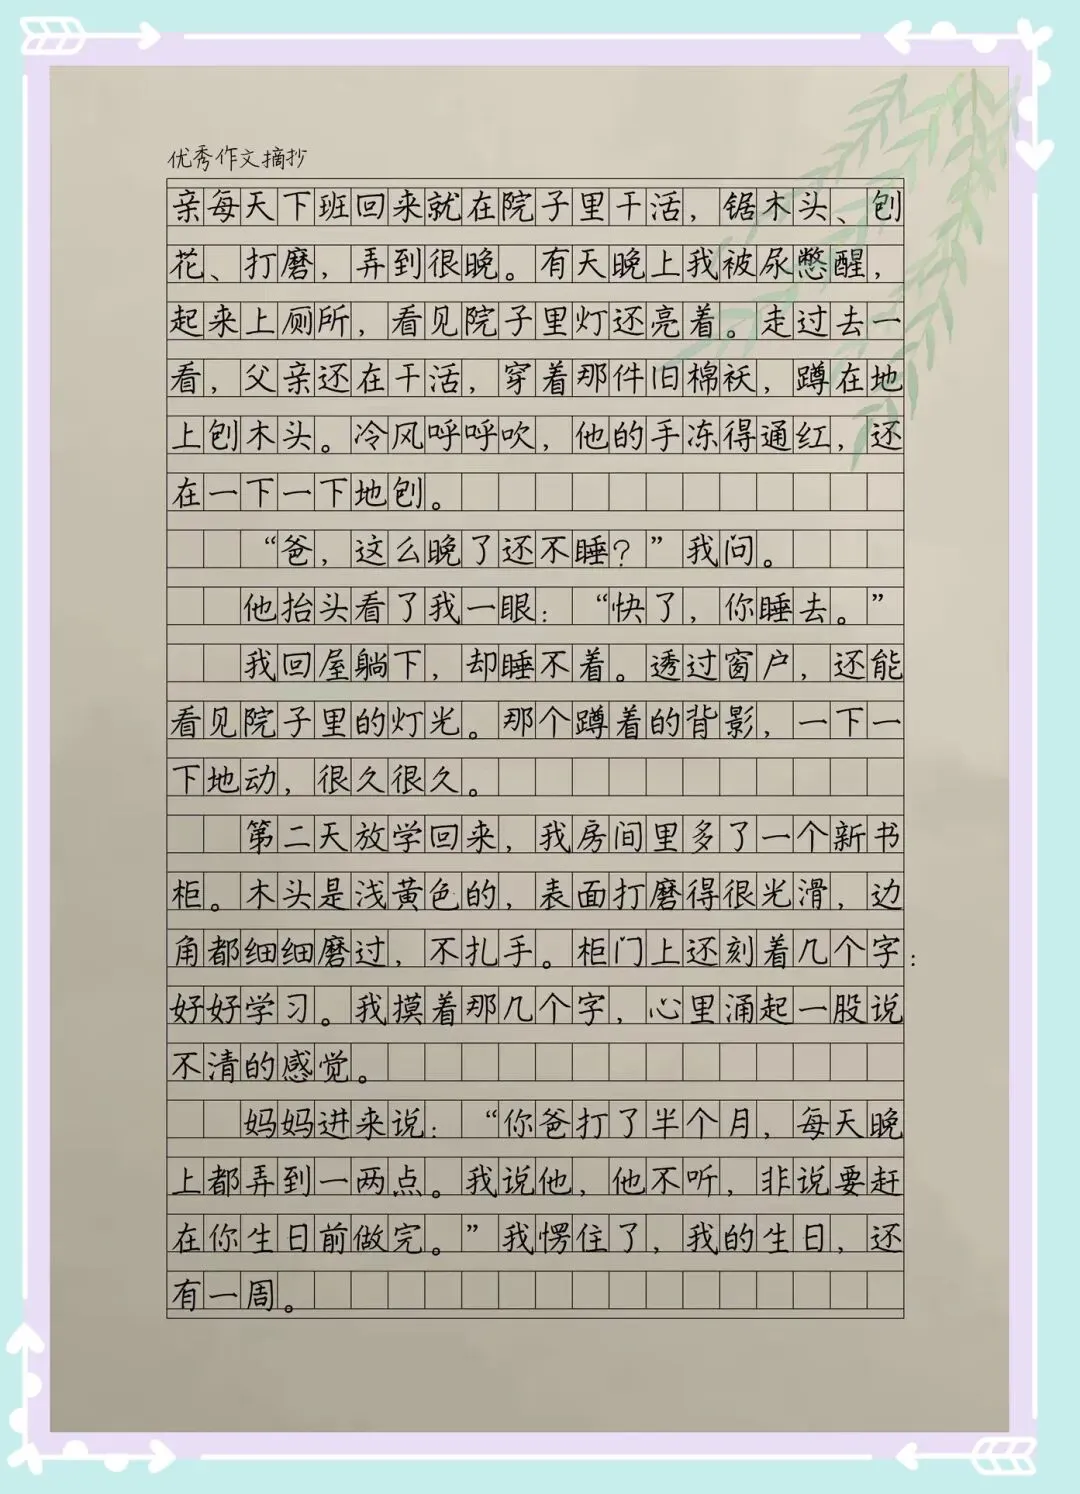 优秀作文摘抄
亲每天下班回来就在院子里干活，锯木头、刨
花、打磨，弄到很晚。有天晚上我被尿憋醒，
起来上厕所，看见院子里灯还亮着。走过去一
看，父亲还在干活，穿着那件旧棉袄，蹲在地
上刨木头。冷风呼呼吹，他的手冻得通红，还
在一下一下地刨。
“爸，这么晚了还不睡？”我问。
他抬头看了我一眼：“快了，你睡去。”
我回屋躺下，却睡不着。透过窗户，还能
看见院子里的灯光。那个蹲着的背影，一下一
下地动，很久很久。
第二天放学回来，我房间里多了一个新书
柜。木头是浅黄色的，表面打磨得很光滑，边
角都细细磨过，不扎手。柜门上还刻着几个字：
好好学习。我摸着那几个字，心里涌起一股说
不清的感觉。
妈妈进来说：“你爸打了半个月，每天晚
上都弄到一两点。我说他，他不听，非说要赶
在你生日前做完。”我愣住了，我的生日，还
有一周。